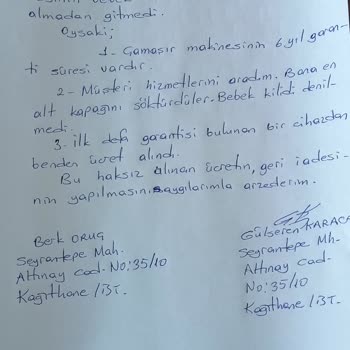 almadan gitmedi.
Oysaki;
1- Çamaşır makinesinin 6 yıl garan-
ti süresi vardır.
2- Müşteri hizmetlerini aradım. Bana en
alt kapağını söktürdüler. Bebek kilidi denil-
medi.
3- İlk defa garantisi bulunan bir cihazdan
benden ücret alındı.
Bu haksız alınan ücretin, geri iadesi-
nin yapılmasını saygılarımla arzederim.
Berk ORUÇ
Seyrantepe Mah.
Altınay cad. No:35/10
Kağıthane / İST.
Gülseren KARACA
Seyrantepe Mh-
Altınay cad-
No: 35/10
Kağıthane / İST.